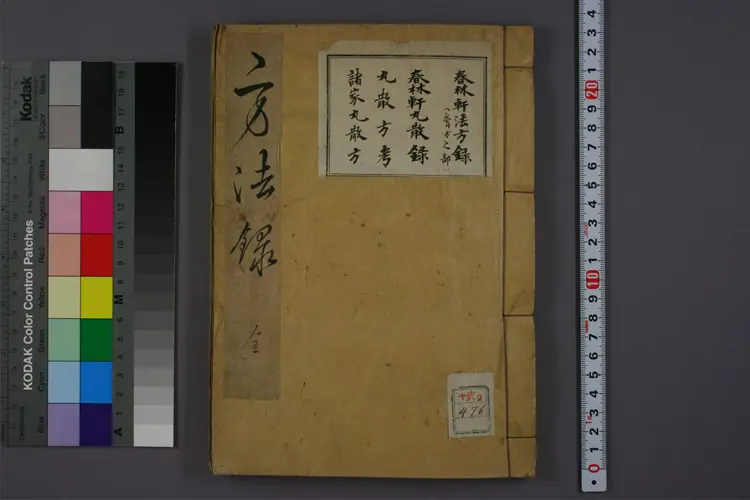 春林軒法方録
(膏方之部)
春林軒丸散録
丸散方考
諸家丸散方
方法録
全
476
Kodak
KODAK Color Control Patches
Blue
Cyan
Green
Yellow
Red
Magenta
White
3/Color
Black
A 1 2 3 4 5 6 M 8 9 10 11 12 13 14 15 B 17 18 19
0 1 2 3 4 5 6 7 8 9 10 1 2 3 4 5 6 7 8 9 20 1 2 3 4